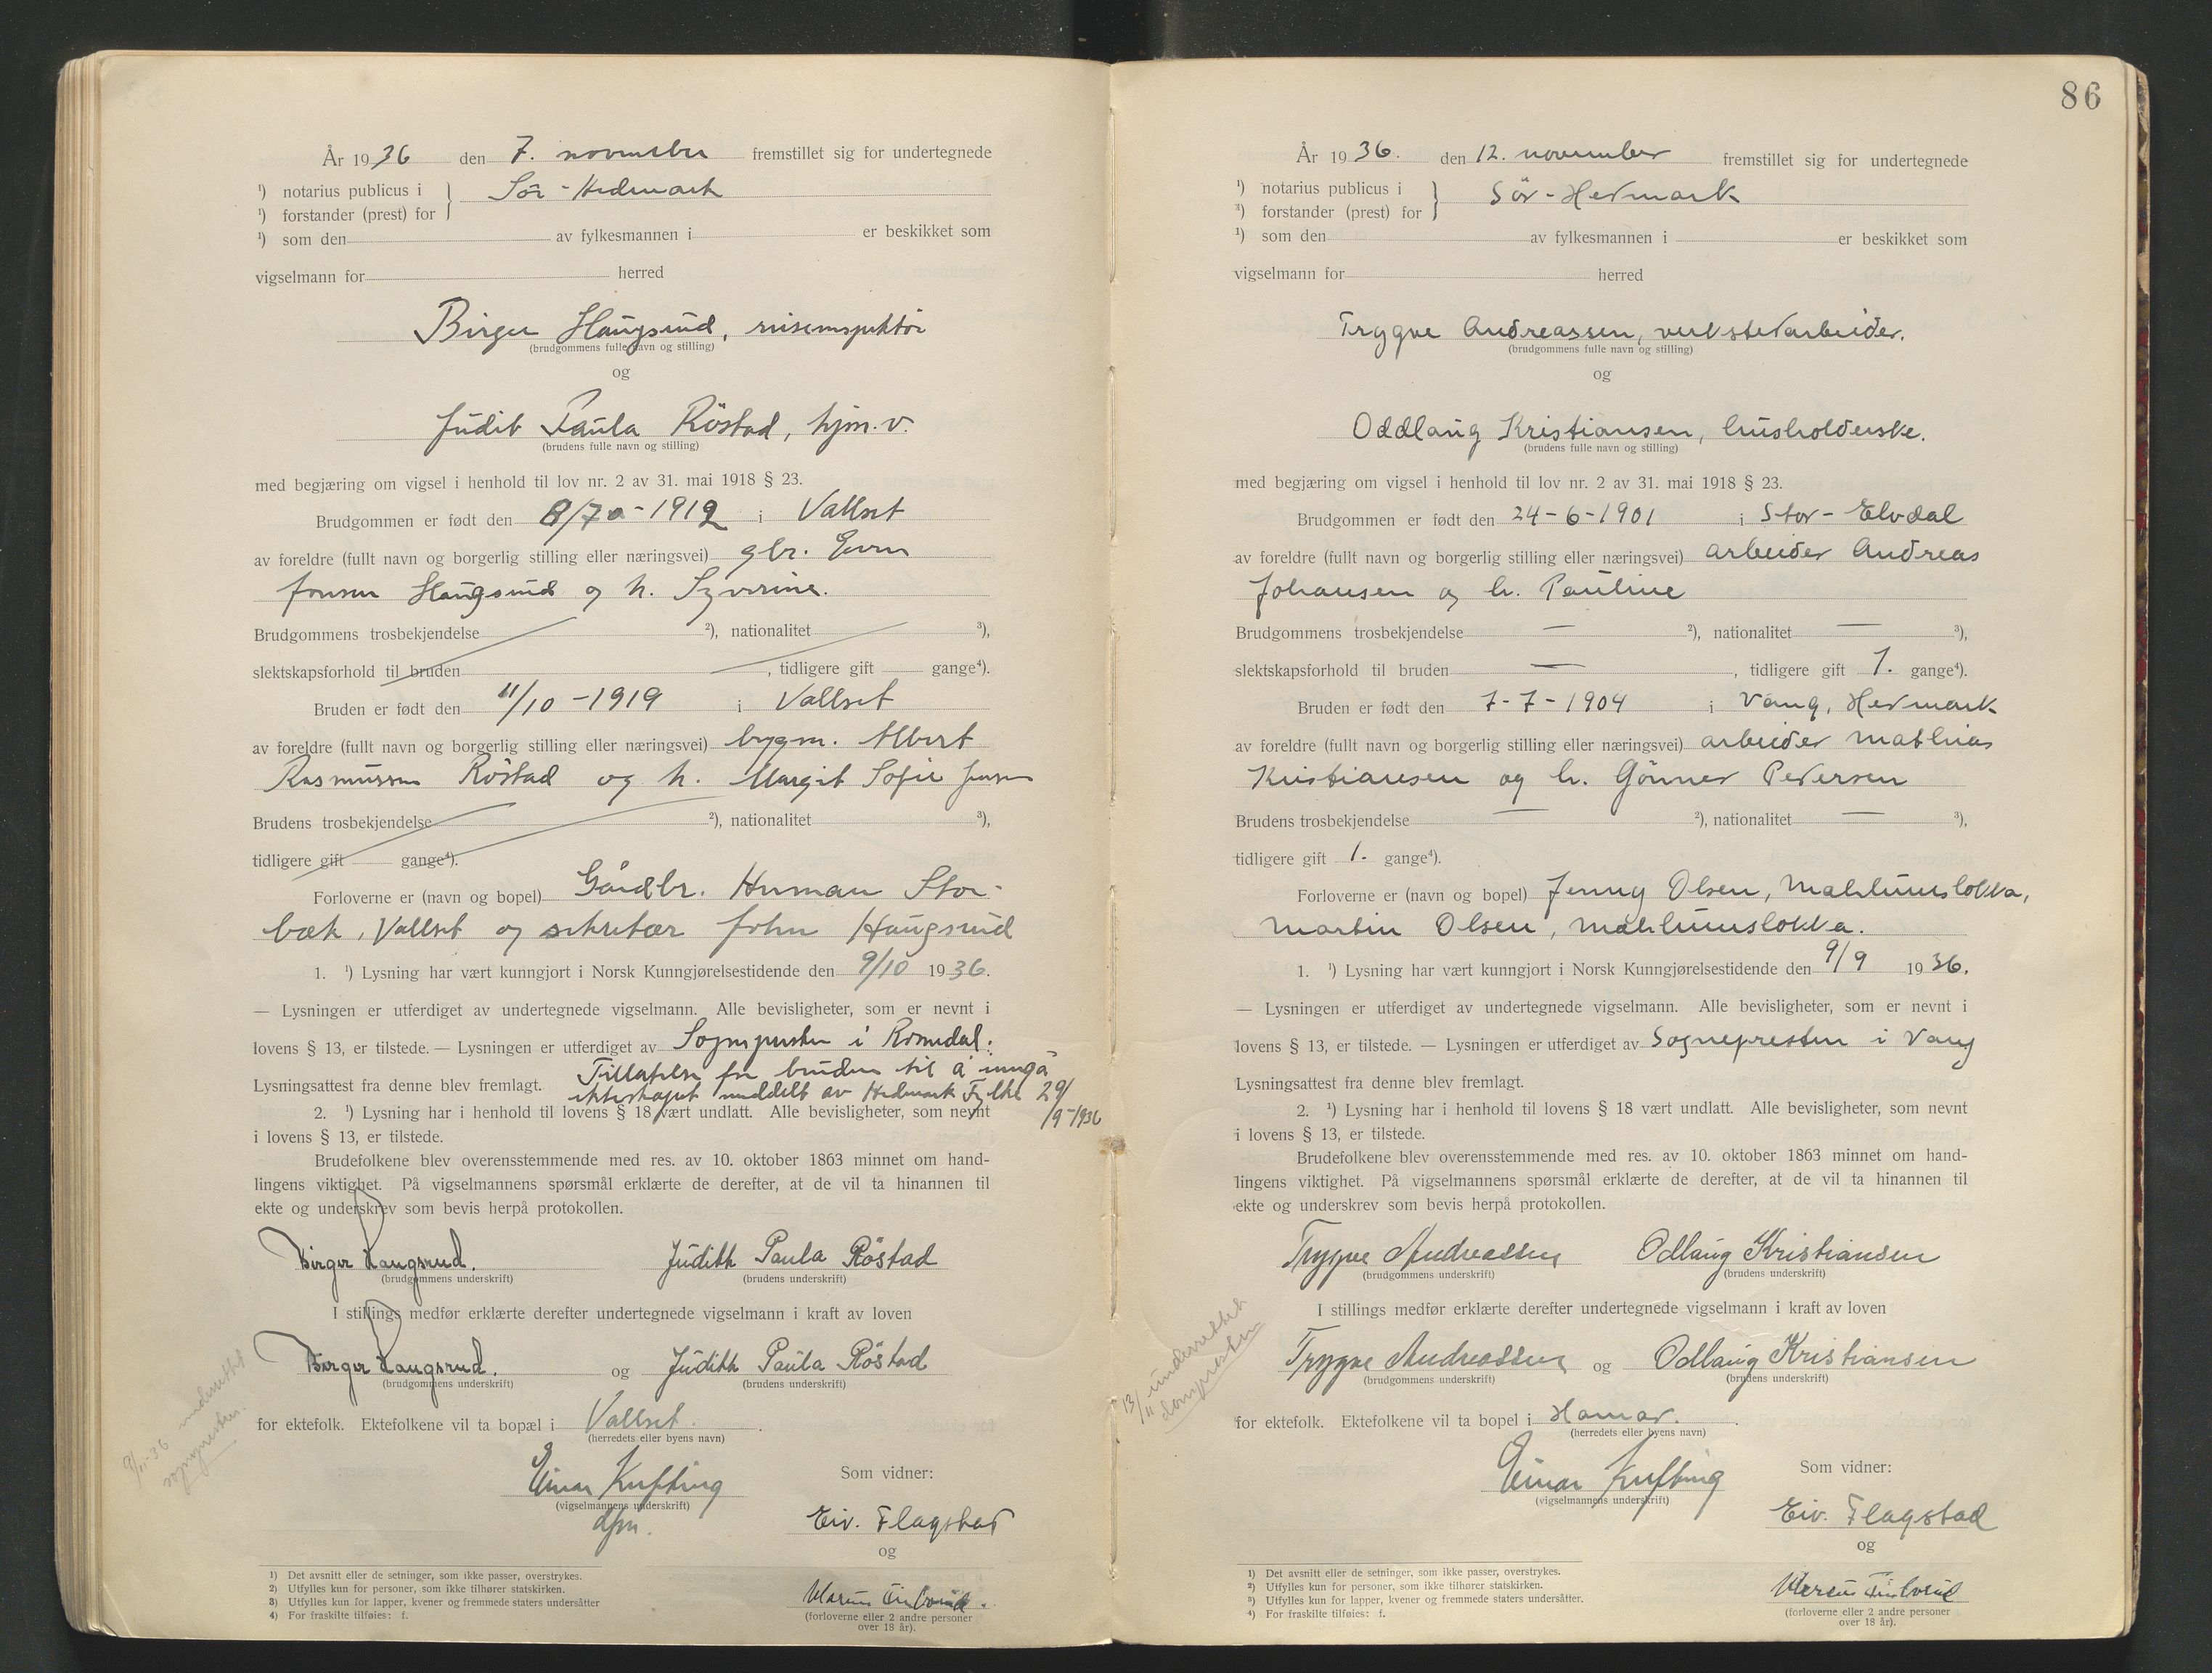 År 1936 den 7. november fremstillet sig for undertegnede
¹) notarius publicus i } Sör - Hedmark
¹) forstander (prest) for
¹) som den av fylkesmannen i er beskikket som
vigselmann for herred
Birger Haugsrud, reiseinspektör
(brudgommens fulle navn og stilling)
og
Judit Paula Röstad, hjm.v.
(brudens fulle navn og stilling)
med begjæring om vigsel i henhold til lov nr. 2 av 31. mai 1918 § 23.
Brudgommen er født den -1912 i Vallset
av foreldre (fullt navn og borgerlig stilling eller næringsvei) gbr. Even
Jonsen Haugsrud og h. Syverine.
Brudgommens trosbekjendelse ²), nationalitet ³),
slektskapsforhold til bruden , tidligere gift gange⁴).
Bruden er født den 11/10 -1919 i Vallset
av foreldre (fullt navn og borgerlig stilling eller næringsvei) bygm. Albert
Rasmussen Röstad og h. Margit Sofie Jensen
Brudens trosbekjendelse ²), nationalitet ³),
tidligere gift gange⁴).
Forloverne er (navn og bopel) Gårdbr. Herman Stor-
bæk, Vallset og sekretær John Haugsrud
1. ¹) Lysning har vært kunngjort i Norsk Kunngjørelsestidende den 9/10 1936.
— Lysningen er utferdiget av undertegnede vigselmann. Alle bevisligheter, som er nevnt i
lovens § 13, er tilstede. — Lysningen er utferdiget av Sognepresten i Romedal.
Lysningsattest fra denne blev fremlagt. Tillatelse for bruden til å inngå
ekteskapet meddelt av Hedmark Fylke 29/
/9-1936
2. ¹) Lysning har i henhold til lovens § 18 vært undlatt. Alle bevisligheter, som nevnt
i lovens § 13, er tilstede.
Brudefolkene blev overensstemmende med res. av 10. oktober 1863 minnet om hand-
lingens viktighet. På vigselmannens spørsmål erklærte de derefter, at de vil ta hinannen til
ekte og underskrev som bevis herpå protokollen.
Birger Haugsrud. Judith Paula Röstad
(brudgommens underskrift) (brudens underskrift)
I stillings medfør erklærte derefter undertegnede vigselmann i kraft av loven
Birger Haugsrud. og Judith Paula Röstad
(brudgommens underskrift) (brudens underskrift)
for ektefolk. Ektefolkene vil ta bopæl i Vallset.
(herredets eller byens navn)
9/11-36 underrettet
sognepresten.
Einar Kufting Som vidner:
(vigselmannens underskrift)
dfm. Eiv. Flagstad
og
(forloverne eller 2 andre personer
over 18 år).
1) Det avsnitt eller de setninger, som ikke passer, overstrykes.
2) Utfylles kun for personer, som ikke tilhører statskirken.
3) Utfylles kun for lapper, kvener og fremmede staters undersåtter
4) For fraskilte tilføies: f.
86
År 1936. den 12. november fremstillet sig for undertegnede
¹) notarius publicus i } Sör - Hedmark
¹) forstander (prest) for
¹) som den av fylkesmannen i er beskikket som
vigselmann for herred
Trygve Andreassen, verkstedarbeider.
(brudgommens fulle navn og stilling)
og
Oddlaug Kristiansen, husholderske.
(brudens fulle navn og stilling)
med begjæring om vigsel i henhold til lov nr. 2 av 31. mai 1918 § 23.
Brudgommen er født den 24-6-1901 i Stor-Elvdal
av foreldre (fullt navn og borgerlig stilling eller næringsvei) arbeider Andreas
Johansen og h. Pauline
Brudgommens trosbekjendelse — ²), nationalitet — ³),
slektskapsforhold til bruden — , tidligere gift 1. gange⁴).
Bruden er født den 7-7-1904 i Vang, Hedmark
av foreldre (fullt navn og borgerlig stilling eller næringsvei) arbeider Mathias
Kristiansen og h. Gönner Pedersen
Brudens trosbekjendelse — ²), nationalitet — ³),
tidligere gift 1. gange⁴).
Forloverne er (navn og bopel) Jenny Olsen, Mæhlumslökka,
Martin Olsen, Mæhlumslökka.
1. ¹) Lysning har vært kunngjort i Norsk Kunngjørelsestidende den 9/9 1936.
— Lysningen er utferdiget av undertegnede vigselmann. Alle bevisligheter, som er nevnt i
lovens § 13, er tilstede. — Lysningen er utferdiget av Sognepresten i Vang
Lysningsattest fra denne blev fremlagt.
2. ¹) Lysning har i henhold til lovens § 18 vært undlatt. Alle bevisligheter, som nevnt
i lovens § 13, er tilstede.
Brudefolkene blev overensstemmende med res. av 10. oktober 1863 minnet om hand-
lingens viktighet. På vigselmannens spørsmål erklærte de derefter, at de vil ta hinannen til
ekte og underskrev som bevis herpå protokollen.
Trygve Andreassen Odlaug Kristiansen
(brudgommens underskrift) (brudens underskrift)
I stillings medfør erklærte derefter undertegnede vigselmann i kraft av loven
Trygve Andreassen og Odlaug Kristiansen
(brudgommens underskrift) (brudens underskrift)
13/11 underrettet
domprosten
for ektefolk. Ektefolkene vil ta bopel i Hamar.
(herredets eller byens navn)
Einar Kufting Som vidner:
(vigselmannens underskrift)
Eiv. Flagstad
og
(forloverne eller 2 andre personer
over 18 år).
1) Det avsnitt eller de setninger, som ikke passer, overstrykes.
2) Utfylles kun for personer, som ikke tilhører statskirken.
3) Utfylles kun for lapper, kvener og fremmede staters undersåtter.
4) For fraskilte tilføies: f.